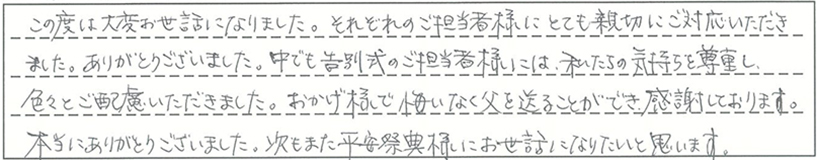 この度は大変お世話になりました。それぞれのご担当者様にとても親切にご対応いただき
ました。ありがとうございました。中でも告別式のご担当者様には、私たちの気持ちを尊重し、
色々とご配慮いただきました。おかげ様で悔いなく父を送ることができ、感謝しております。
本当にありがとうございました。次もまた平安祭典様にお世話になりたいと思います。